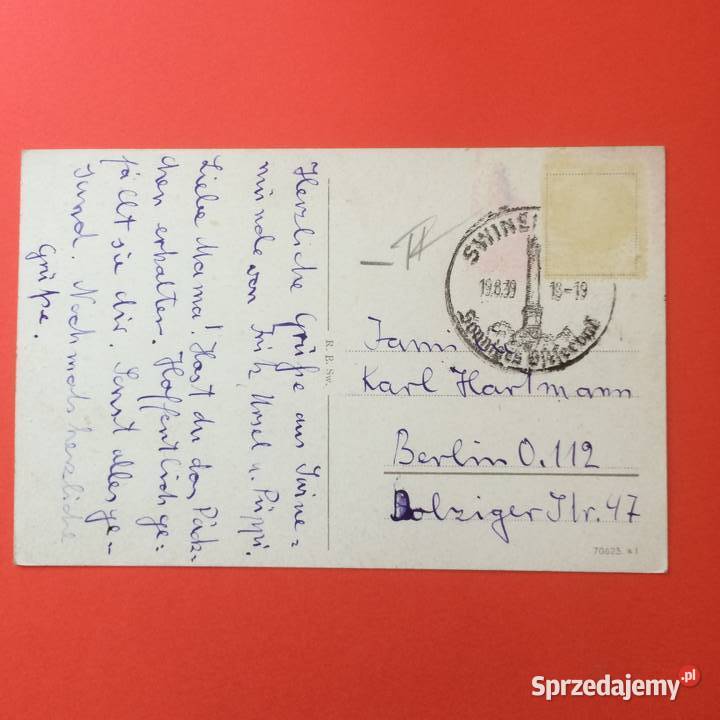 Herzliche Grüße aus Swine=
münde von Fritz, Ursel u. Püppi.
Liebe Mama! Hast du das Päck-
chen erhalten. Hoffentlich ge-
fällt sie dir. Sonst alles ge-
sund. Nochmals herzliche
Grüße.
R. B. Sw.
SWINE
19.8.39 18-19
Sonniges Ostseebad
Fami
Karl Hartmann
Berlin O.112
Dolziger Str. 47
70623. *1
Sprzedajemy.pl